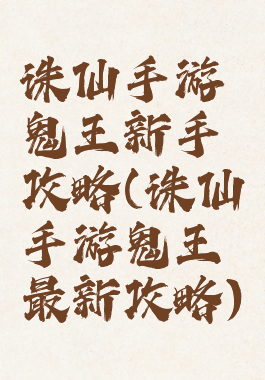 诛仙手游
鬼王新手
攻略(诛仙
手游鬼王
最新攻略)